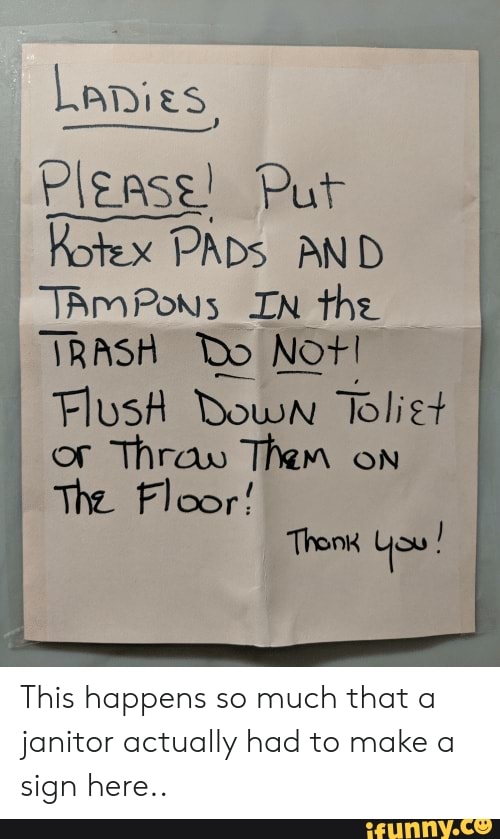 LADiES,
PlEASE! Put
Kotex PADS AND
TAmPONS IN the
TRASH Do NOt!
FlUSH DowN Toliet
or Thraw Them oN
The Floor!
Thank you!
This happens so much that a
janitor actually had to make a
sign here..
ifunny.co